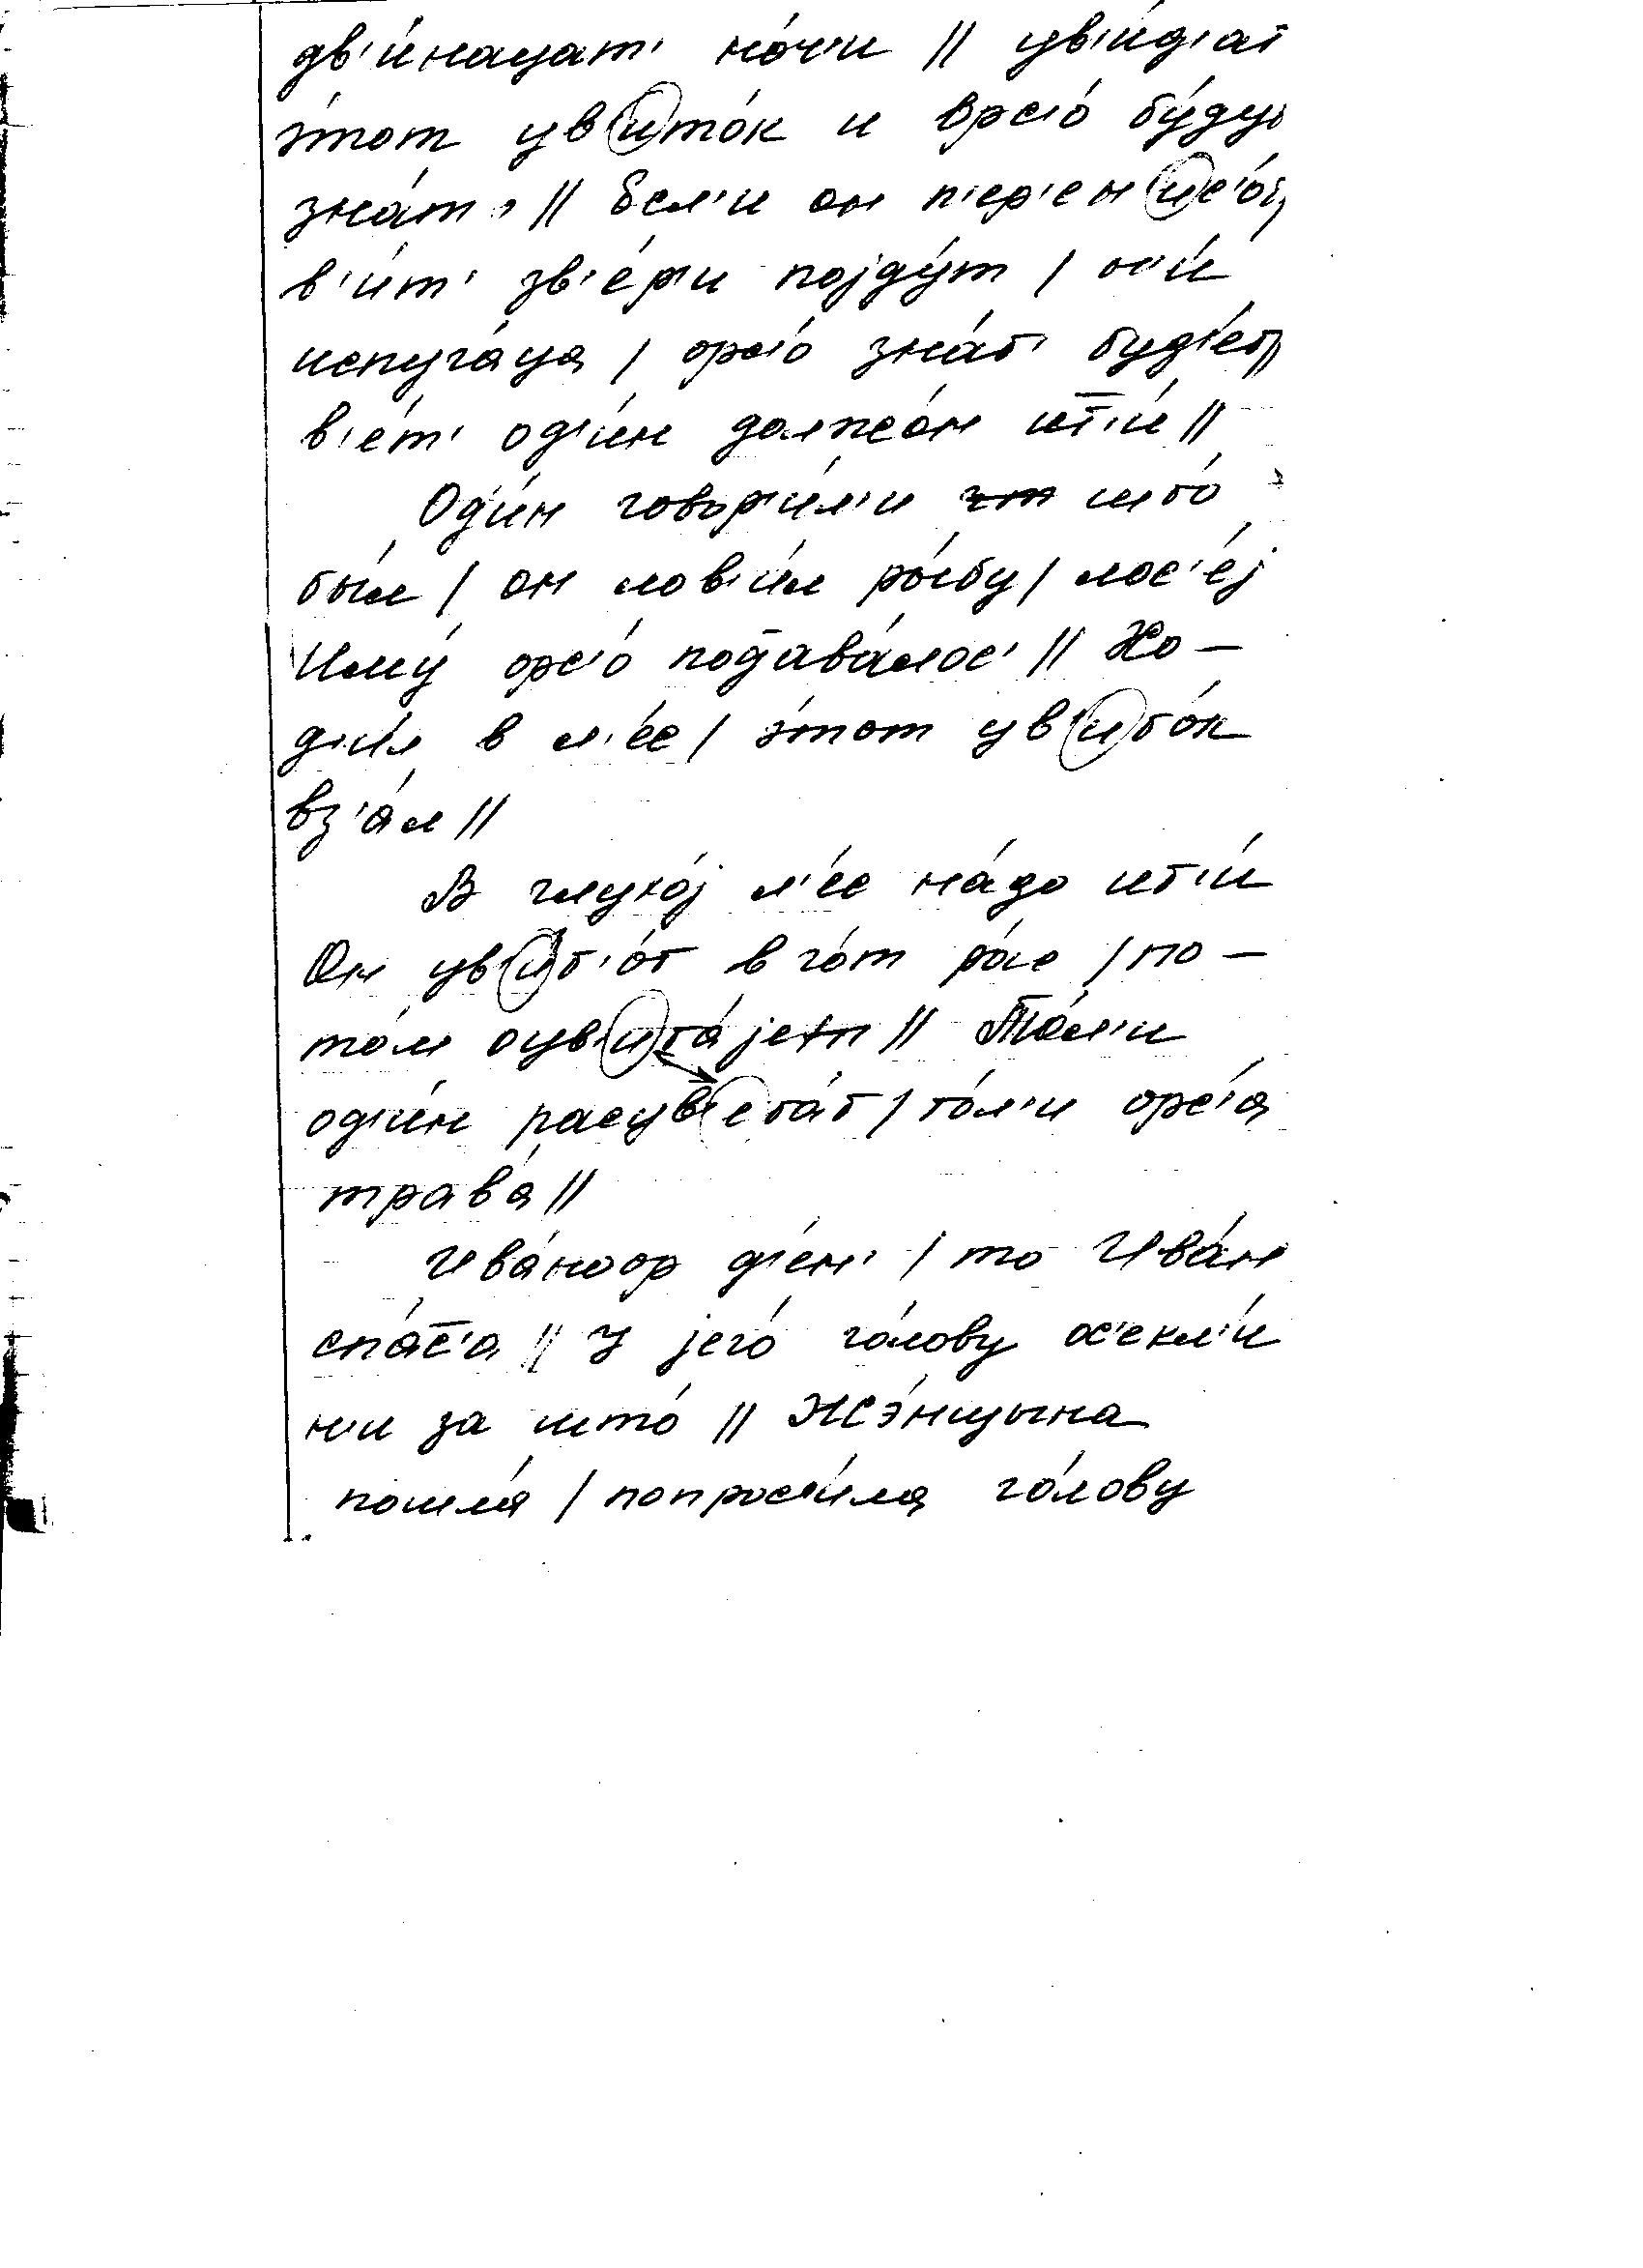 дв'и́нацат' но́ч'и || цв'и́д'ат
э́тот цв'ито́к и врс'о́ бу́дут
знат' || Есл'и он п'ер'ен'ис'о́т,
в'ит' зв'е́р'и појду́т / он'и́
испуга́ца / орс'о́ зна́т' буд'ет ||
в'е́т' од'и́н должо́н ит'и́ ||
Од'и́н говор'и́л'и што́
бы́л / он лов'и́л ры́бу / лос'е́ј
Иму́ орс'о́ подава́лос' || Хо-
д'и́л в л'е́с / э́тот цв'ито́к
вз'а́л ||
В глухо́ј л'е́с на́до ит'и́
Он цв'ит'о́т в го́т ра́с / по-
то́м оцв'ита́јет || То́л'и
од'и́н расцв'ета́т / то́л'и орс'а́
трава́ ||
Ива́ноор д'е́н' / то Ива́н
спа́с'а || У јего́ го́лову ос'екл'и́
н'и за што́ || Жэ́нщына
пошла́ / попрос'и́ла го́лову